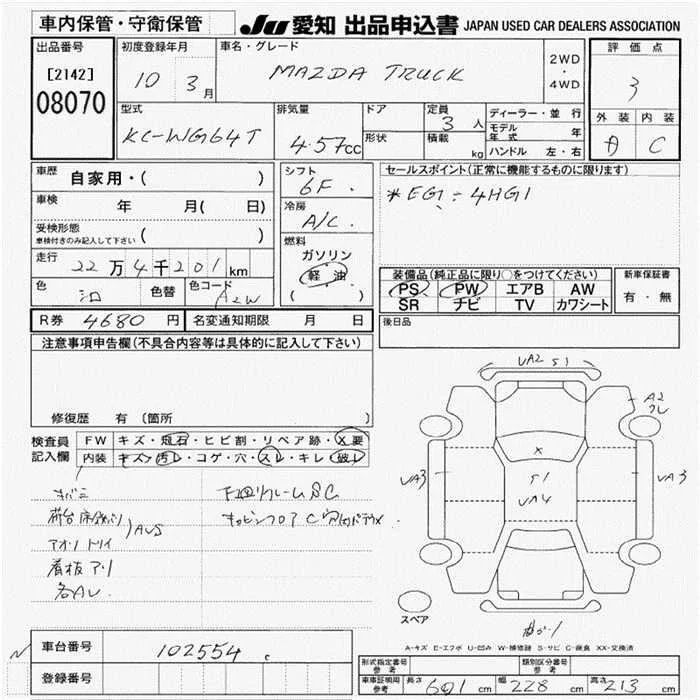 車内保管・守衛保管
JU 愛知 出品申込書 JAPAN USED CAR DEALERS ASSOCIATION
出品番号
[2142]
08070
初度登録年月
10 3月
車名・グレード
MAZDA TRUCK
2WD
・
4WD
評価点
3
外装 内装
A C
型式
KC-WG64T
排気量
4.57cc
ドア
形状
定員
3人
積載
kg
ディーラー・並行
モデル年式 年
ハンドル 左・右
車歴
自家用・( )
車検
年 月( 日)
受検形態
車検付きのみ記入して下さい ( )
走行
22万4千201km
色
シロ
色替
色コード
A2W
シフト
6F.
冷房
A/C.
燃料
ガソリン
軽油
( )
セールスポイント(正常に機能するものに限ります)
*EG1÷4HG1
装備品(純正品に限り○をつけてください)
PS PW エアB AW
SR ナビ TV カワシート
新車保証書
有・無
後日品
R券 4680円
名変通知期限 月 日
注意事項申告欄(不具合内容等は具体的に記入して下さい)
修復歴 有 〔箇所 〕
検査員
記入欄
FW キズ・飛石・ヒビ割・リペア跡・X要
内装 キズ・汚レ・コゲ・穴・スレ・キレ・破レ
サビミ
荷台
AUS
下回リフレームSC
キャビンフロアC
アオリ
看板アリ
各AU
UA2 51
A2
UA3
X
51
UA4
UA3
スペア
曲ガ-1
A-キズ E-エクボ U-凹み W-補修跡 S-サビ C-腐食 XX-交換済
車台番号
102554
登録番号
N
形式指定番号
参考
類別区分番号
参考
車車証明用
参考
長さ 601cm
幅 228cm
高さ 213cm